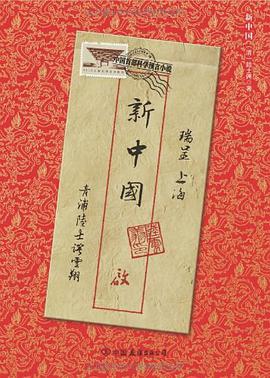 新中国 〔清〕陆士谔 著
中国首部科学预言小说
瑞呈 上海
新中國
啟
青浦陸士諤雲翔
中国友谊出版公司